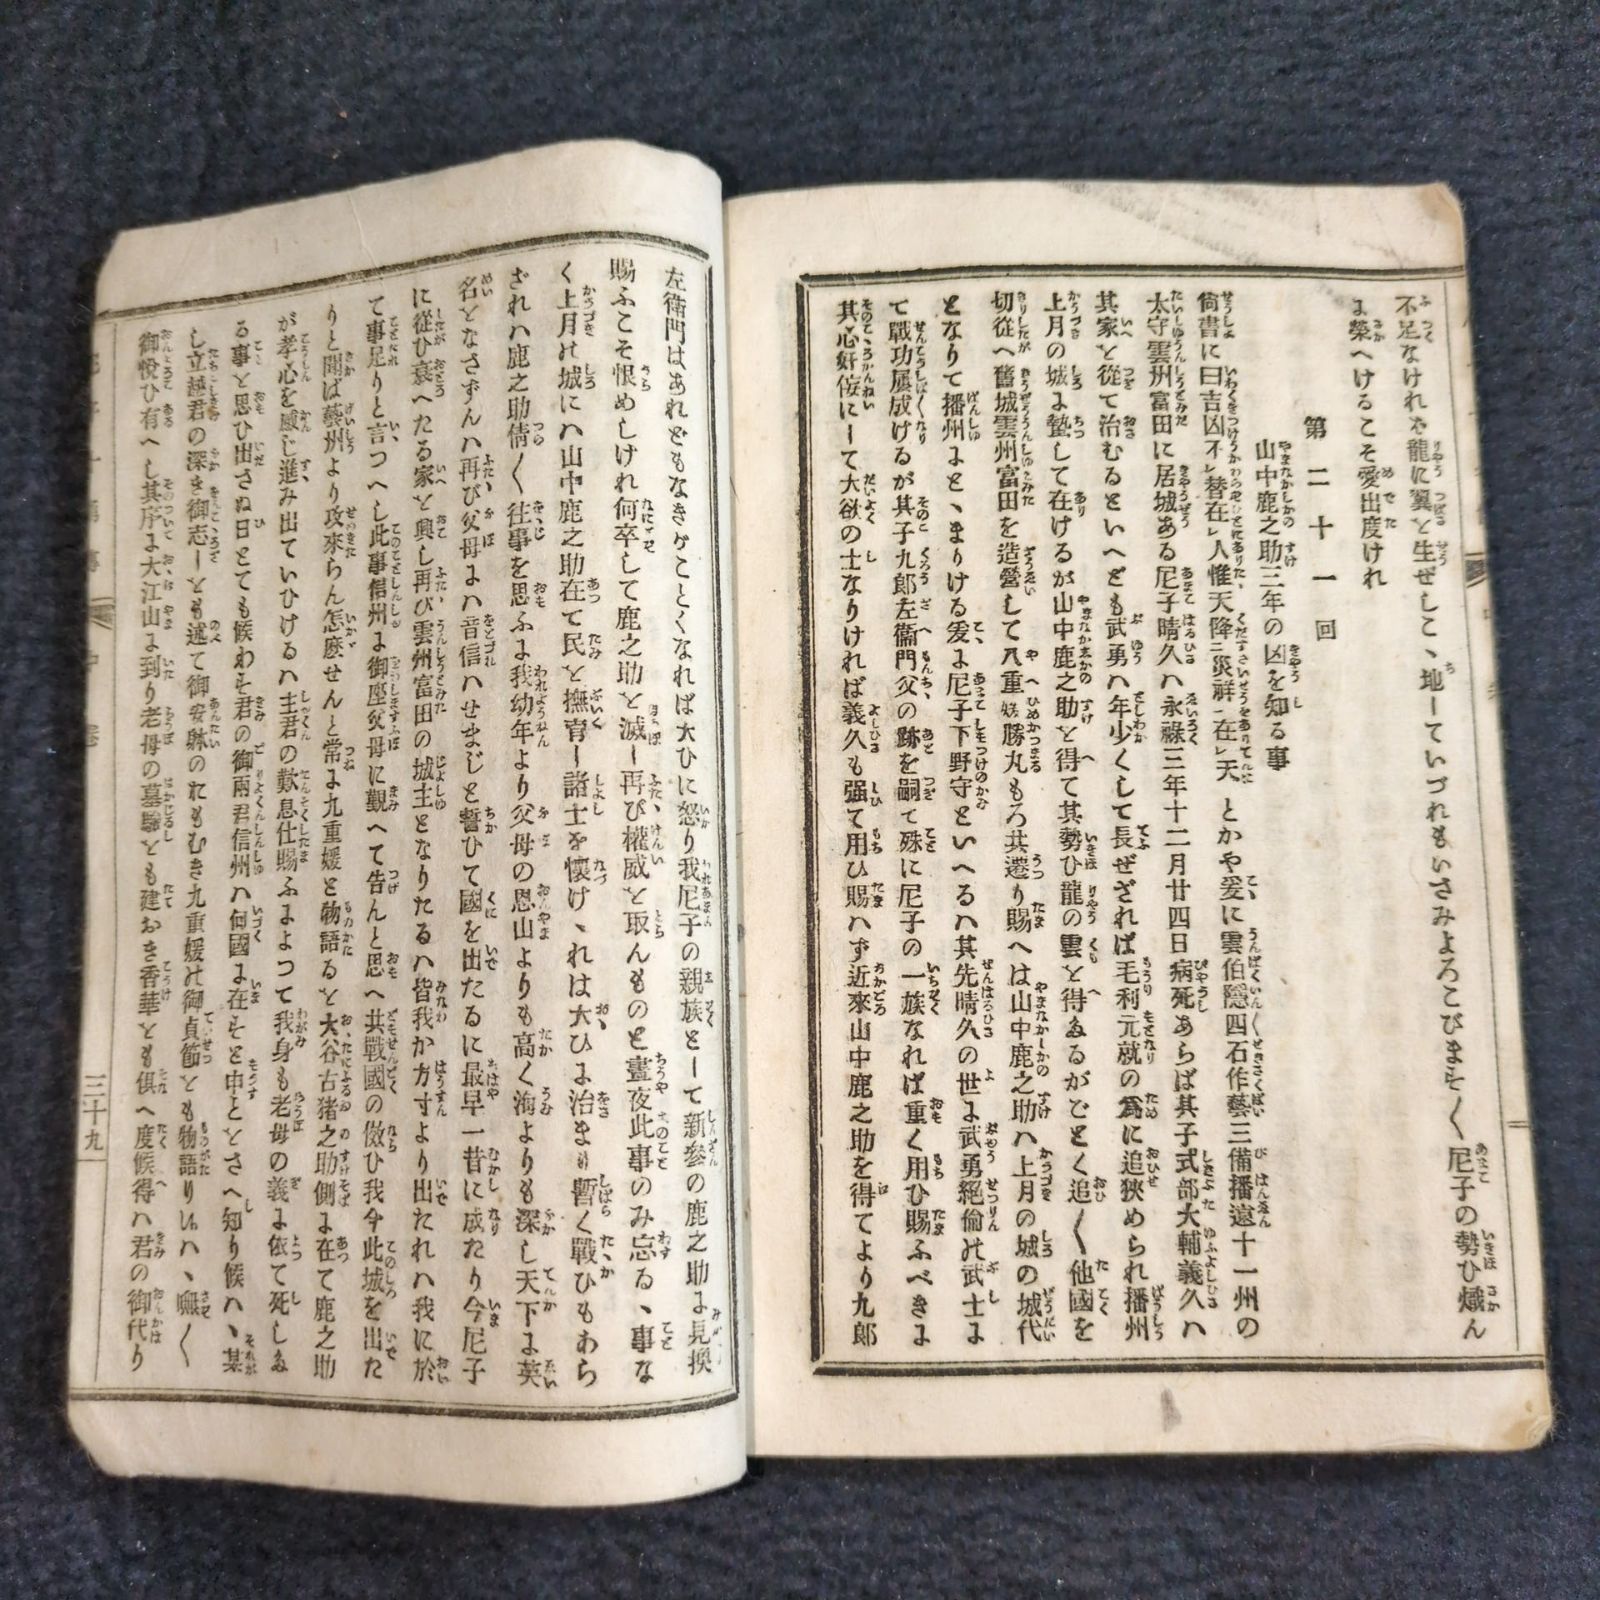 不足なけれや龍に翼と生ぜしこゝ地ーていづれもいさみよろこびまそく尼子の勢ひ熾ん
よ榮へけるこそ愛出度けれ
第二十一回
山中鹿之助三年の凶を知る事
尙書に曰吉凶不㆑替在㆑人惟天降㆓災祥㆒在㆑天とかや爰に雲伯隱四石作藝三備播遠十一州の
太守雲州富田に居城ある尼子晴久ハ永祿三年十二月廿四日病死あらば其子式部大輔義久ハ
其家と從て治むるといへども武勇ハ年少くして長ぜざれば毛利元就の爲に追狹められ播州
上月の城よ蟄して在けるが山中鹿之助と得て其勢ひ龍の雲と得るるがごとく追く他國を
切從へ舊城雲州富田を造營して八重姫勝丸もろ共遷り賜へは山中鹿之助ハ上月の城の城代
となりて播州よとゞまりける爰よ尼子下野守といへるハ其先晴久の世よ武勇絕倫の武士よ
て戰功屢成けるが其子九郎左衞門父の跡を嗣て殊に尼子の一族なれば重く用ひ賜ふべきよ
其心奸侫にーて大欲の士なりければ義久も强て用ひ賜ハず近來山中鹿之助を得てより九郎
左衞門はあれどもなきがことくなれば大ひに怒り我尼子の親族とーて新參の鹿之助よ見換
賜ふこそ恨めしけれ何卒して鹿之助と滅ー再び權威と取んものと晝夜此事のみ忘るゝ事な
く上月の城にハ山中鹿之助在て民と撫育ー諸士を懷けゝれは大ひよ治まり暫く戰ひもあら
ざれハ鹿之助倩く往事を思ふよ我幼年より父母の恩山よりも高く海よりも深し天下よ英
名となさずんハ再び父母よハ音信ハせまじと誓ひて國を出たるに最早一昔に成たり今尼子
に從ひ衰へたる家と興し再び雲州富田の城主となりたるハ皆我か方寸より出たれハ我に於
て事足りと言つへし此事信州よ御座父母に覲へて告んと思へ共戰國の倣ひ我今此城を出た
りと聞ば藝州より攻來らん怎麽せんと常よ九重媛と物語ると大谷古猪之助側よ在て鹿之助
が孝心を感じ進み出ていひけるハ主君の歎息仕賜ふよよつて我身も老母の義よ依て死しる
る事と思ひ出さぬ日とても候わそ君の御兩君信州ハ何國よ在そと申とゝさへ知り候ハゝ某
し立越君の深き御志ーとも述て御安躰のれもむき九重媛の御貞節とも物語りいハゝ嘸く
御悅ひ有へし其序よ大江山よ到り老母の墓驗とも建おき香華とも俱へ度候得ハ君の御代り
三十九